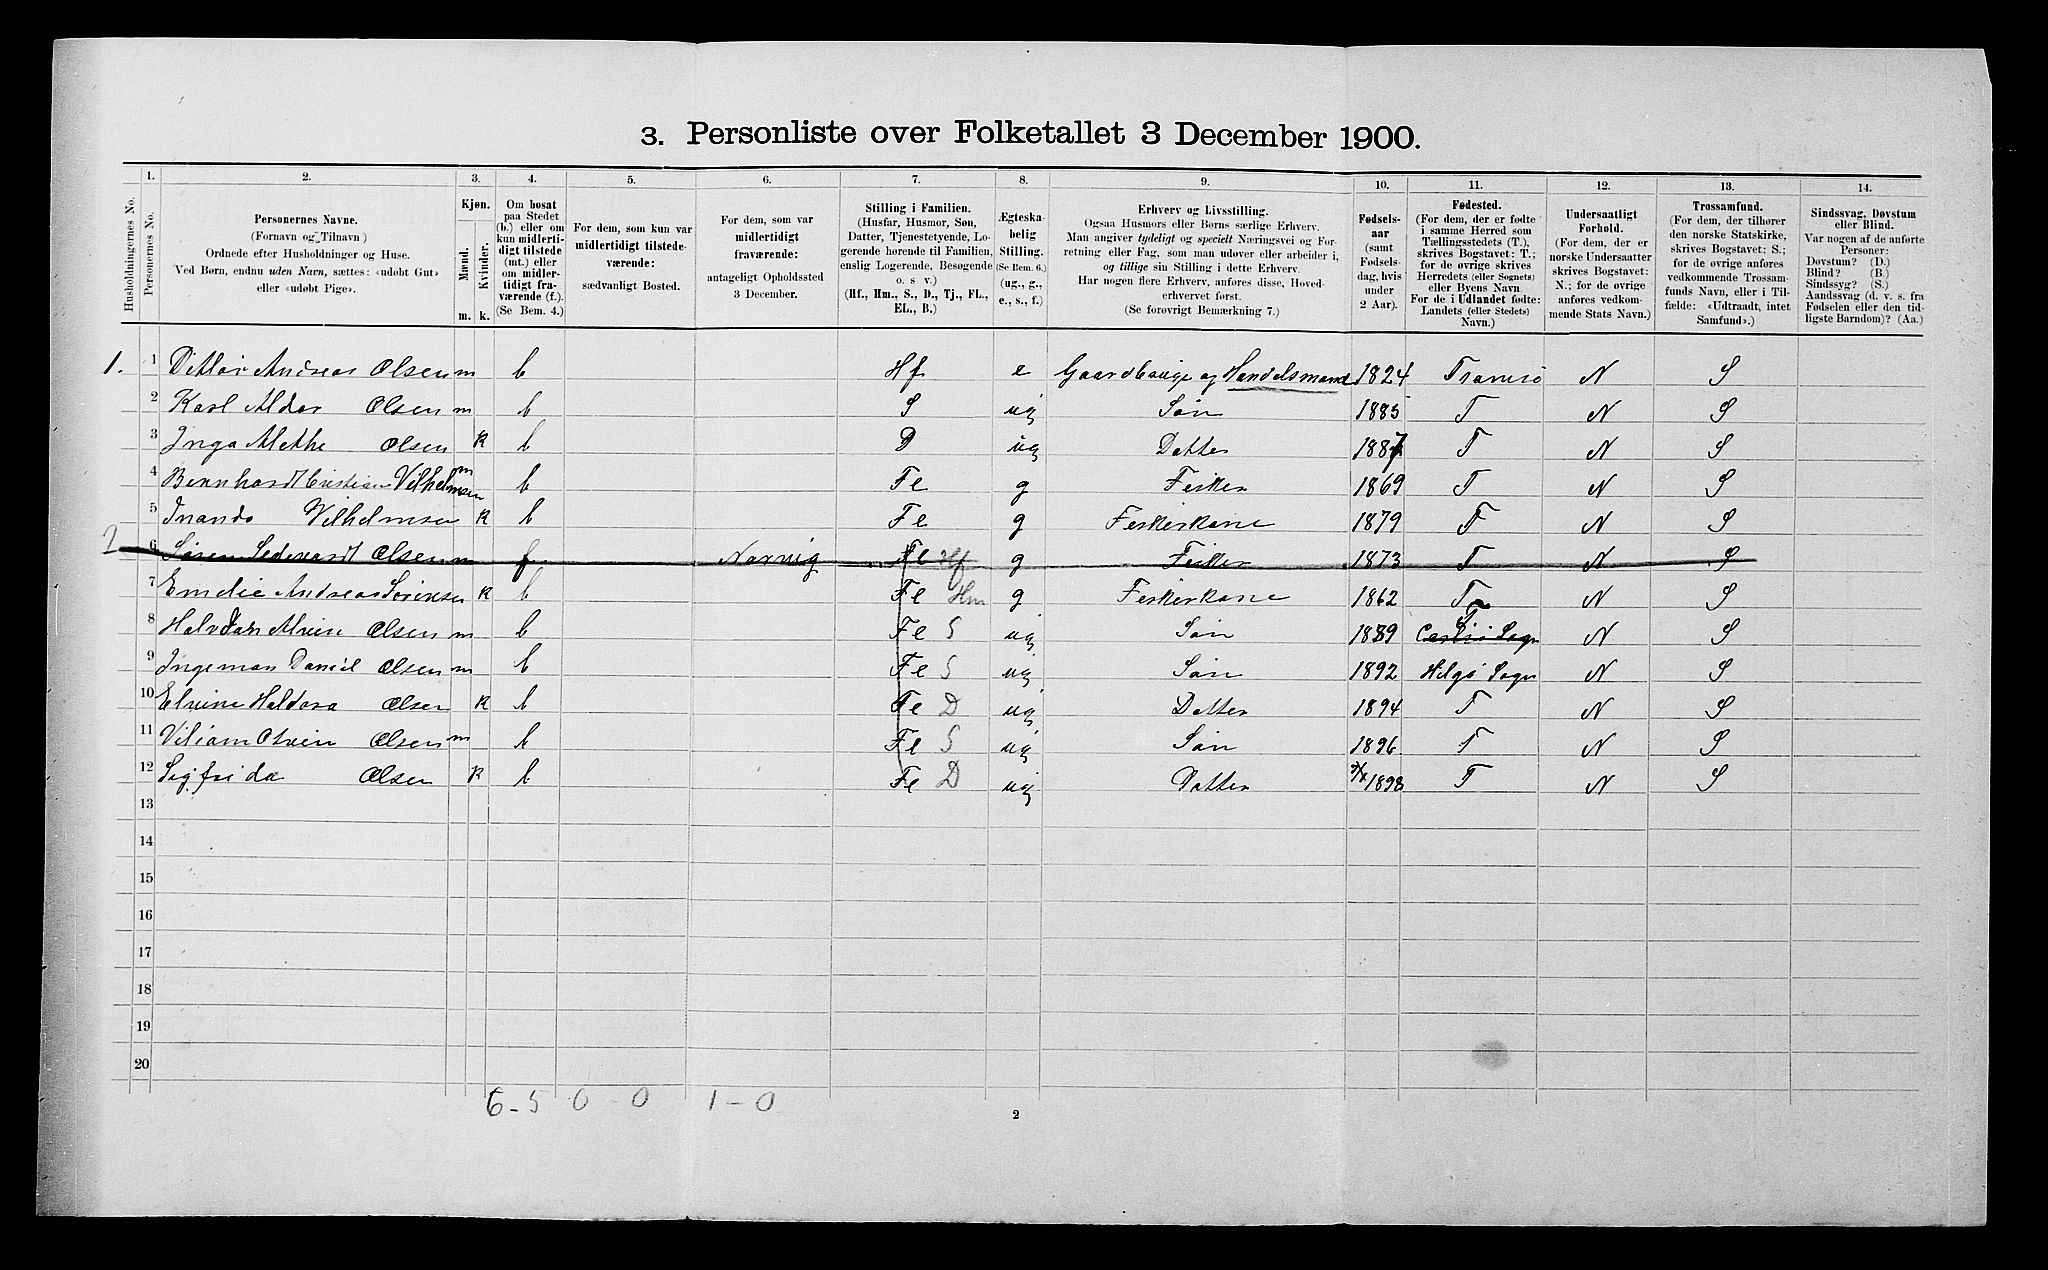 3. Personliste over Folketallet 3 December 1900.
Husholdningernes No.
1. Personernes No.
2. Personernes Navne. (Fornavn og Tilnavn) Ordnede efter Husholdninger og Huse. Ved Børn, endnu uden Navn, sættes: «udøbt Gut» eller «udøbt Pige».
3. Kjøn. Mænd. m. Kvinder. k.
4. Om bosat paa Stedet (b.) eller om kun midlertidigt tilstede (mt.) eller om midlertidigt fraværende (f.). (Se Bem. 4.)
5. For dem, som kun var midlertidigt tilstedeværende: sædvanligt Bosted.
6. For dem, som var midlertidigt fraværende: antageligt Opholdssted 3 December.
7. Stilling i Familien. (Husfar, Husmor, Søn, Datter, Tjenestetyende, Logerende hørende til Familien, enslig Logerende, Besøgende o. s. v.) (Hf., Hm., S., D., Tj., FL., EL., B.)
8. Ægteskabelig Stilling. (Se Bem. 6.) (ug., g., e., s., f.)
9. Erhverv og Livsstilling. Ogsaa Husmors eller Børns særlige Erhverv. Man angiver tydeligt og specielt Næringsvei og Forretning eller Fag, som man udøver eller arbeider i, og tillige sin Stilling i dette Erhverv. Har nogen flere Erhverv, anføres disse, Hovederhvervet først. (Se forøvrigt Bemærkning 7.)
10. Fødselsaar (samt Fødselsdag, hvis under 2 Aar).
11. Fødested. (For dem, der er fødte i samme Herred som Tællingsstedets (T.), skrives Bogstavet: T.; for de øvrige skrives Herredets (eller Sognets) eller Byens Navn. For de i Udlandet fødte: Landets (eller Stedets) Navn.)
12. Undersaatligt Forhold. (For dem, der er norske Undersaatter skrives Bogstavet: N.; for de øvrige anføres vedkommende Stats Navn.)
13. Trossamfund. (For dem, der tilhører den norske Statskirke, skrives Bogstavet: S.; for de øvrige anføres vedkommende Trossamfunds Navn, eller i Tilfælde: «Udtraadt, intet Samfund».)
14. Sindssvag, Døvstum eller Blind. Var nogen af de anførte Personer: Døvstum? (D.) Blind? (B.) Sindssyg? (S.) Aandssvag (d. v. s. fra Fødselen eller den tidligste Barndom)? (Aa.)
1. 1 Ditlov Andreas Olsen m b Hf e Gaardbruge og Handelsmand 1824 Tromsø N S
2 Karl Aldor Olsen m b S ug Søn 1885 T N S
3 Inga Methe Olsen K b D ug Datter 1887 T N S
4 Bernhardt Cristian Vilhelmsen m b Fl g Fisker 1869 T N S
5 Inanda Vilhelmsen K b Fl g Fiskerkone 1879 T N S
2 6 Søren Sedevardt Olsen m f Narvig Fl Hf g Fisker 1873 T N S
7 Emelie Andrea Sørensen K b Fl Hm g Fiskerkone 1862 T N S
8 Halvdan Alvin Olsen m b Fl S ug Søn 1889 T Carlsø Sogn N S
9 Ingeman Daniel Olsen m b Fl S ug Søn 1892 Helgø Sogn N S
10 Elvine Haldora Olsen K b Fl D ug Datter 1894 T N S
11 Viliam Otvin Olsen m b Fl S ug Søn 1896 T N S
12 Sigfrida Olsen K b Fl D ug Datter 1898 T N S
13
14
15
16
17
18
19
20
6 - 5 0 - 0 1 - 0
2